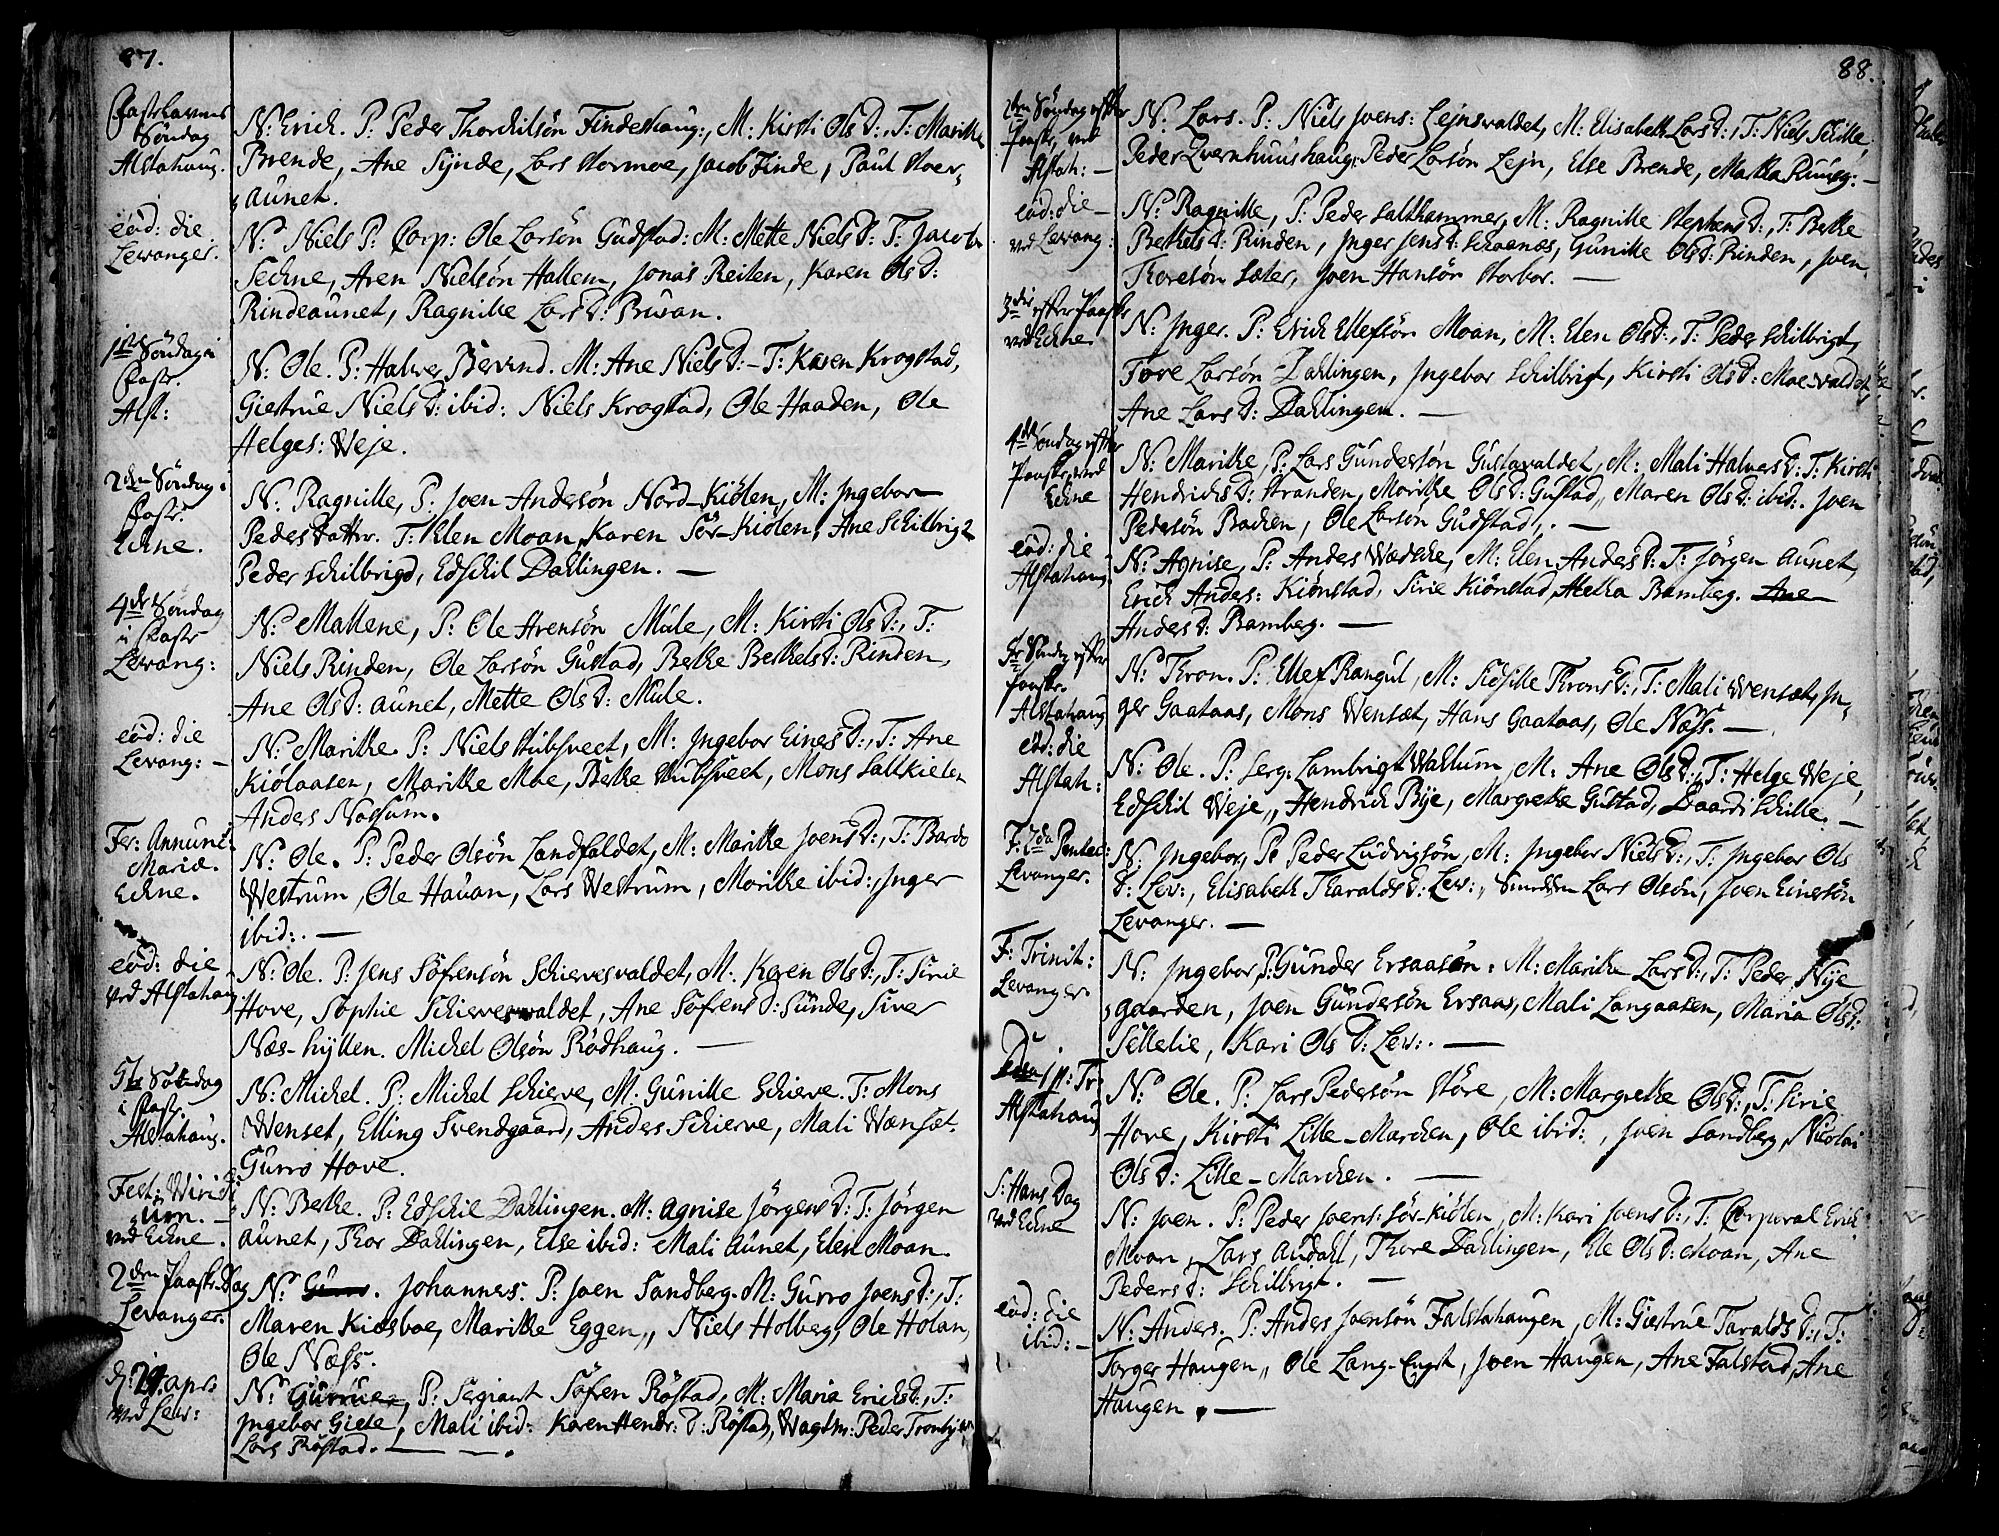 87.
Fastelavens
Søndag
Alstahaug.
N: Erich. P: Peder Thorchilsön Findeshaug:, M: Kirsti Ols D:, T: Marithe
Brende, Ane Synde, Lars Stormoe, Jacob Finde, Paul Stoer-
aunet.
eod: die
Levanger.
N: Niels P: Corp: Ole Larsön Gudstad: M: Mette Niels D: T: Jacob
Aren Nielsön Hallem, Jonas Reiten, Karen Ols D:
Rindeaunet, Ragnille Lars D: Prusan.
1ste Søndag i
Fast:
Alst:
N: Ole. P: Halver Bervind. M: Ane Niels D: - T: Karen Krogstad,
Giestrue Niels D: ibid: Niels Krogstad, Ole Haaden, Ole
Helges: Weje.
2den Søndag i
Fast:
Echne.
N: Ragnille, P: Joen Andersön Nord-Kiölen, M: Ingebor
Pedersdatter. T: Elen Moan, Karen Sör-Kiölen, Ane Schilbrigt
Peder Schilbrigd, Edschil Dahlingen. —
4de Søndag
i Fast
Levang:
N: Mallene, P: Ole Arensön Mule, M: Kirsti Ols D:, T:
Niels Rinden, Ole Larsön Gustad, Berthe Berthels D: Rinden,
Ane Ols D: aunet, Mette Ols D: Mule.
eod: die
Levang: —
N: Marithe. P: Niels Stubsveet, M: Ingebor Einers D:, T: Ane
Kiölaasen, Marithe Moe, Berthe Stubsveet, Mons Saltkielen
Anders Nossum.
Fer: Annunt:
Mariæ.
Echne.
N: Ole. P: Peder Olsön Landfaldet, M: Marithe Joens D:, T: Bardo
Westrum, Ole Hauan, Lars Westrum, Marithe ibid:, Inger
ibid:. —
eod: die
ved Alstahaug
N: Ole. P: Jens Söfrensön Schiervesvaldet, M: Karen Ols D:, T: Sirie
Hove, Sophie Schiervesvaldet, Ane Söfrens D: Sunde, Siver
Næs-hyllen. Michel Olsön Rödhaug. —
5te Søndag
i Fast.
Alstahaug.
N: Michel. P: Michel Schierve, M: Gunille Schierve. T: Mons
Wenset, Elling Svendgaard, Anders Schierve, Mali Wænset.
Gurro Hove.
Fest: Wiridi
um. —
ved Echne.
N: Berthe. P: Edschil Dahlingen. M: Agnise Jörgens D: T: Jörgen
aunet, Thor Dahlingen, Else ibid: Mali Aunet, Elen Moan.
2den Paaske Dag
Levanger.
N: Gurro. Johannes: P: Joen Sandberg. M: Gurro Joens D:, T:
Maren Kiösboe, Marithe Eggen, Niels Holberg, Ole Holan,
Ole Næss.
d: 29 apr:
ved Lev:
N: Gurrue, P: Sergiant Söfren Röstad, M: Maria Erichs D:, T:
Ingebor Giete, Mali ibid: Karen Hendr: D: Röstad, Wagtm: Peder Tronby
Lars Röstad. —
88.
2den Søndag efter
Paaske, ved
Alstah: —
N: Lars. P: Niels Joens: Lejnsvaldet, M: Elisabeth Lars D:, T: Niels Schille,
Peder Qvernhuushaug: Peder Larsön Lejn, Else Brende, Martha Ruusg: —
eod: die —
ved Levang:
N: Ragnille, P: Peder Salthammer, M: Ragnille Stephens D:, T: Berthe
Berthels D: Rinden, Inger Jens D: Schaenæs, Gunille Ols D: Rinden, Joen
Thoresön Sæter, Joen Hansön Storbor. —
3die efter Paaske
ved Echne.
N: Inger. P: Erich Ellefsön Moan, M: Elen Ols D:, T: Peder Schilbrigt,
Tore Larsön Dahlingen, Ingebor Schilbrigt, Kirsti Ols D: Moe-valdet,
Ane Lars D: Dahlingen. —
4de Søndag efter
Paaske, ved
Echne
N: Marithe, P: Lars Gundersön Gustavaldet, M: Mali Halvers D: T: Kirsti
Hendrichs D: Stranden, Marithe Ols D: Gustad, Maren Ols D: ibid:. Joen
Pedersön Backen, Ole Larsön Gudstad,. —
eod: die
Alstahaug
N: Agnise, P: Anders Wædsche, M: Elen Anders D: T: Jörgen Aunet,
Erich Anders: Kiönstad, Sirie Kiönstad, Metha Bamberg. Ane
Anders D: Bamberg. —
5te Søndag efter
Paaske.
Alstahaug
N: Thron. P: Ellef Rangul, M: Sidsille Throns D:, T: Mali Wenset, In-
ger Gaataas, Mons Wenset, Hans Gaataas, Ole Næss. —
eod: die
Alstah:
N: Ole. P: Serg: Lambrigt Wallum, M: Ane Ols D:, T: Helge Weje,
Edschil Weje, Hendrich Bye, Margrethe Gustad, Baardi Schille. —
F: 2da Pentec:
Levanger.
N: Ingebor, P: Peder Ludvigsön, M: Ingebor Niels D:, T: Ingebor Ols
D: Lev:, Elisabeth Tharalds D: Lev:, Smedden Lars Olsön, Joen Einersön
Levanger. —
F: Trinit:
Levanger.
N: Ingebor, P: Gunder Ersaasen. M: Marithe Lars D:, T: Peder Nye
gaarden, Joen Gundersön Ersaas, Mali Langaasen, Maria Ols D:
Sellelie, Kari Ols D: Lev:. —
Dca 1 p: Tr:
Alstahaug
N: Ole. P: Lars Pedersön Störe, M: Margrethe Ols D:, T: Sirie
Hove, Kirsti Lille-Marchen, Ole ibid:, Joen Sandberg, Nicolai
Ols D: Lille-Marchen. —
S: Hans Dag
ved Echne
N: Joen. P: Peder Joens: Sör-Kiölen, M: Kari Joens D:, T: Corporal Erich
Moan, Lars Audahl, Thore Dahlingen, Ele Ols D: Moan, Ane
Peders D: Schilbrigt. —
eod: die
ibid: —
N: Anders. P: Anders Joensön Falstahaugen, M: Giestrue Taralds D:, T:
Torger Haugen, Ole Lang-Engst, Joen Haugen, Ane Falstad, Ane
Haugen. —